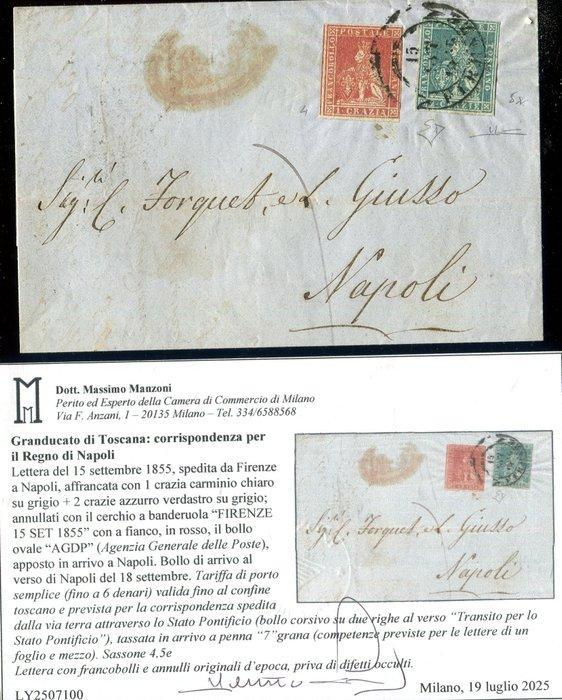 FRANCOBOLLO POSTALE TOSCANO
1 CRAZIA
15
Sig.ri C. Forquet, e L. Giusso
Napoli
Dott. Massimo Manzoni
Perito ed Esperto della Camera di Commercio di Milano
Via F. Anzani, 1 – 20135 Milano – Tel. 334/6588568
Granducato di Toscana: corrispondenza per
il Regno di Napoli
Lettera del 15 settembre 1855, spedita da Firenze
a Napoli, affrancata con 1 crazia carminio chiaro
su grigio + 2 crazie azzurro verdastro su grigio;
annullati con il cerchio a banderuola "FIRENZE
15 SET 1855" con a fianco, in rosso, il bollo
ovale "AGDP" (Agenzia Generale delle Poste),
apposto in arrivo a Napoli. Bollo di arrivo al
verso di Napoli del 18 settembre. Tariffa di porto
semplice (fino a 6 denari) valida fino al confine
toscano e prevista per la corrispondenza spedita
dalla via terra attraverso lo Stato Pontificio (bollo corsivo su due righe al verso "Transito per lo
Stato Pontificio"), tassata in arrivo a penna "7"grana (competenze previste per le lettere di un
foglio e mezzo). Sassone 4,5e
Lettera con francobolli e annulli originali d'epoca, priva di difetti occulti.
LY2507100
Milano, 19 luglio 2025
Sig.ri C. Forquet, e L. Giusso
Napoli